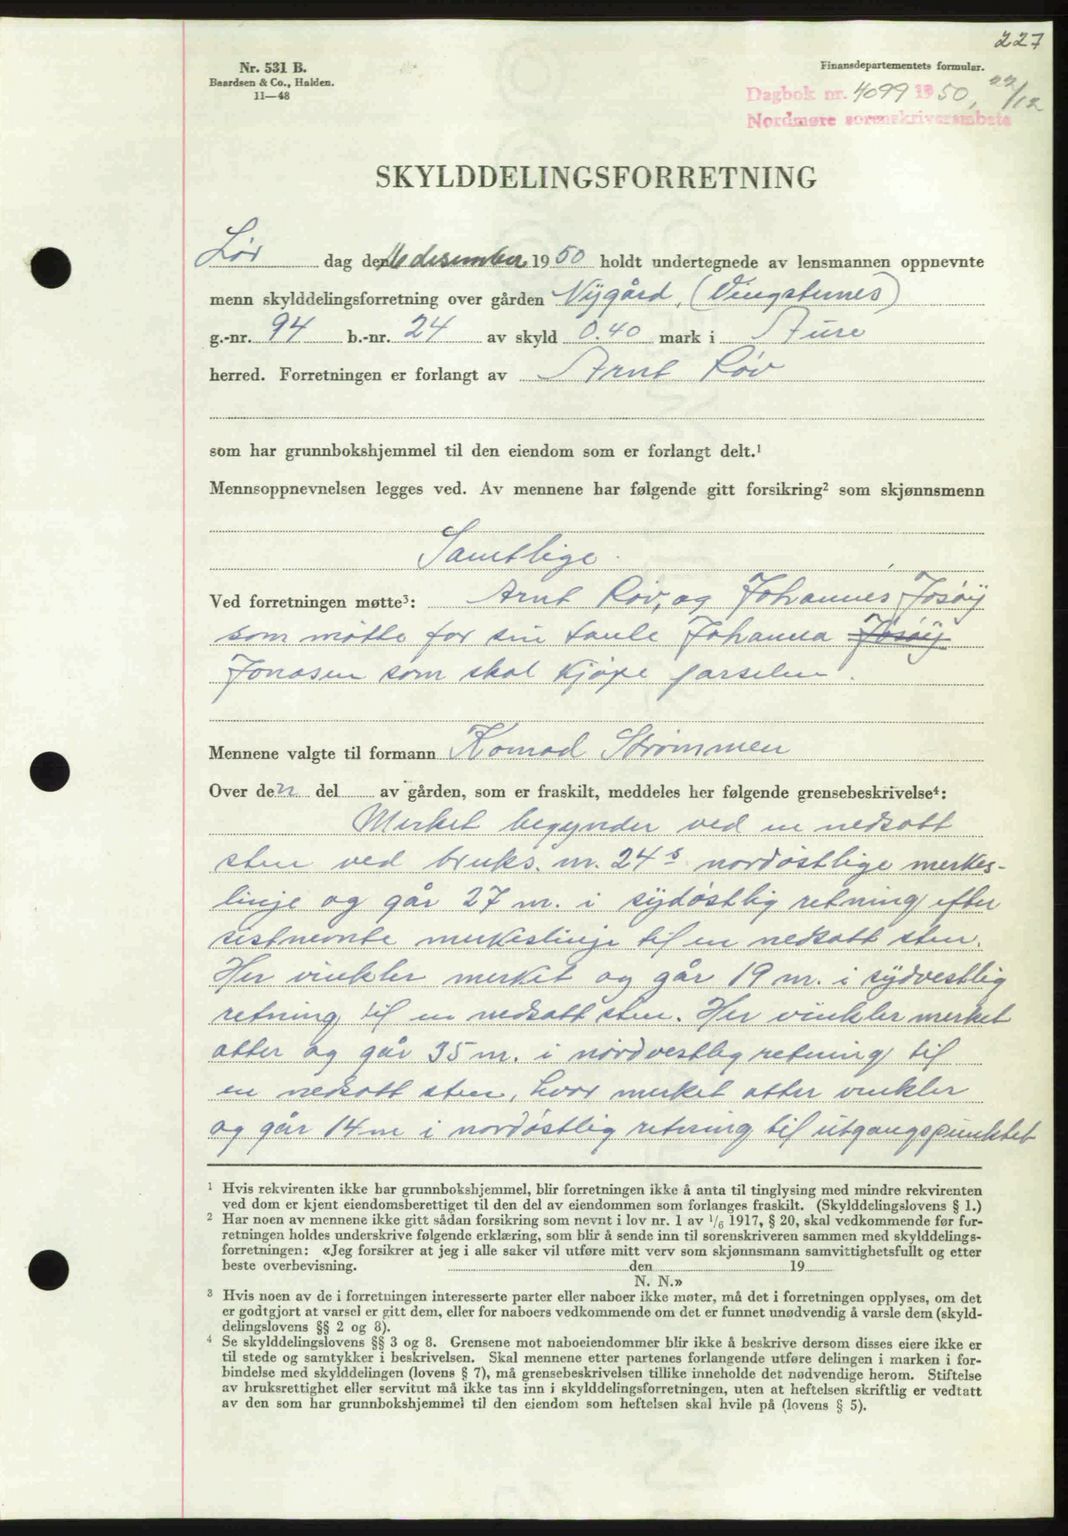 227
Nr. 531 B.
Baardsen & Co., Halden.
11—48
Finansdepartementets formular.
Dagbok nr. 4099 1950, 22/12
Nordmøre sorenskriverembete
SKYLDDELINGSFORRETNING
Lør dag den 16 desember 1950 holdt undertegnede av lensmannen oppnevnte
menn skylddelingsforretning over gården Nygård, (Vingsternes)
g.-nr. 94 b.-nr. 24 av skyld 0.40 mark i Aure
herred. Forretningen er forlangt av Arnt Røv
som har grunnbokshjemmel til den eiendom som er forlangt delt.¹
Mennsoppnevnelsen legges ved. Av mennene har følgende gitt forsikring² som skjønnsmenn
Samtlige.
Ved forretningen møtte³: Arnt Røv, og Johannes Jøsøy
som møtte for sin tante Johanna Jøsøy
Jonasen som skal kjøpe parselen.
Mennene valgte til formann Konrad Strømmen
Over den del av gården, som er fraskilt, meddeles her følgende grensebeskrivelse⁴:
Merket begynder ved en nedsatt
sten ved bruks. nr. 24s nordøstlige merkes-
linje og går 27 m. i sydøstlig retning efter
sistnevnte merkeslinje til en nedsatt sten.
Her vinkler merket og går 19 m. i sydvestlig
retning til en nedsatt sten. Her vinkler merket
atter og går 35 m. i nordvestlig retning til
en nedsatt sten, hvor merket atter vinkler
og går 14 m i nordøstlig retning til utgangspunktet
¹ Hvis rekvirenten ikke har grunnbokshjemmel, blir forretningen ikke å anta til tinglysing med mindre rekvirenten
ved dom er kjent eiendomsberettiget til den del av eiendommen som forlanges fraskilt. (Skylddelingslovens § 1.)
² Har noen av mennene ikke gitt sådan forsikring som nevnt i lov nr. 1 av 1/6 1917, § 20, skal vedkommende før for-
retningen holdes underskrive følgende erklæring, som blir å sende inn til sorenskriveren sammen med skylddelings-
forretningen: «Jeg forsikrer at jeg i alle saker vil utføre mitt verv som skjønnsmann samvittighetsfullt og etter
beste overbevisning. den 19
N. N.»
³ Hvis noen av de i forretningen interesserte parter eller naboer ikke møter, må det i forretningen opplyses, om det
er godtgjort at varsel er gitt dem, eller for naboers vedkommende om det er funnet unødvendig å varsle dem (skyld-
delingslovens §§ 2 og 8).
⁴ Se skylddelingslovens §§ 3 og 8. Grensene mot naboeiendommer blir ikke å beskrive dersom disses eiere ikke er
til stede og samtykker i beskrivelsen. Skal mennene etter partenes forlangende utføre delingen i marken i for-
bindelse med skylddelingen (lovens § 7), må grensebeskrivelsen tillike inneholde det nødvendige herom. Stiftelse
av bruksrettighet eller servitut må ikke tas inn i skylddelingsforretningen, uten at heftelsen skriftlig er vedtatt
av den som har grunnbokshjemmel til den eiendom som heftelsen skal hvile på (lovens § 5).